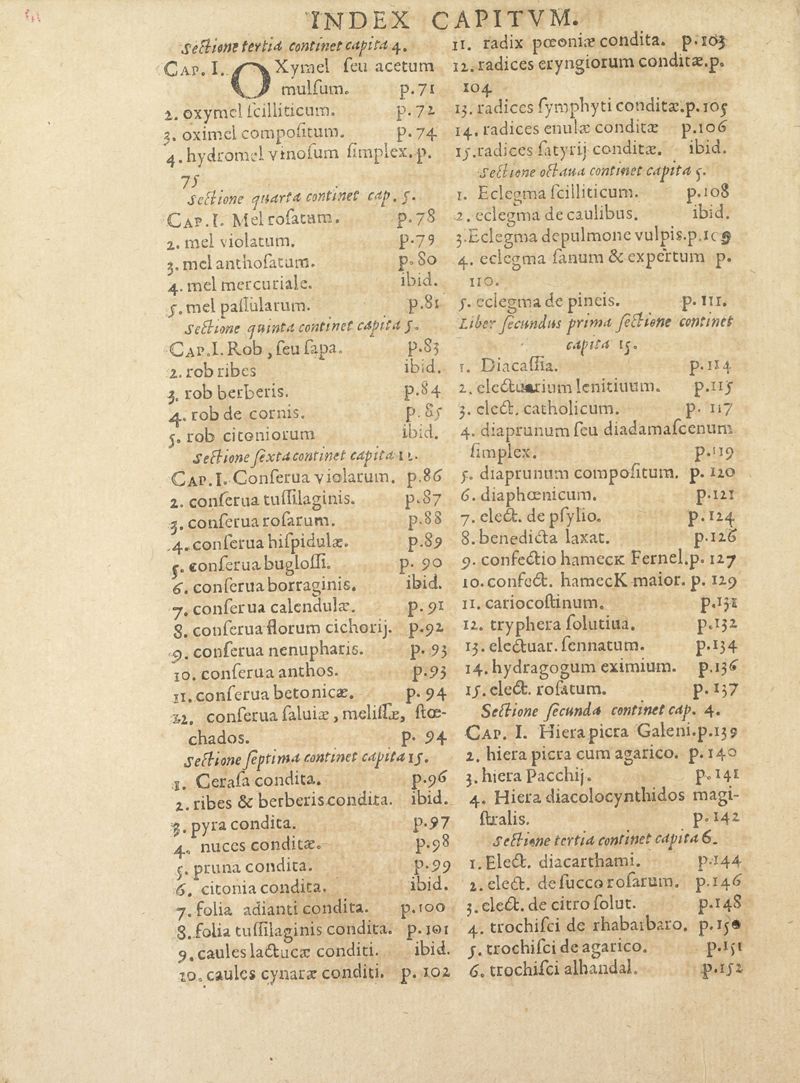 INDEX CAPITVM.
Sectione tertia continet capita 4.
CAP. I. OXymel ſeu acetum
mulſum. p.71
2. oxymel ſcilliticum. p.72
3. oximel compoſitum. p.74
4. hydromel vinoſum ſimplex. p.
75
Sectione quarta continet cap. 5.
CAP. I. Mel roſatum. p.78
2. mel violatum. p.79
3. mel anthoſatum. p.80
4. mel mercuriale. ibid.
5. mel paſſularum. p.81
Sectione quinta continet capita 5.
CAP. I. Rob, ſeu ſapa. p.83
2. rob ribes ibid.
3. rob berberis. p.84
4. rob de cornis. p.85
5. rob citoniorum ibid.
Sectione ſexta continet capita 12.
CAP. I. Conſerua violarum. p.86
2. conſerua tuſſilaginis. p.87
3. conſerua roſarum. p.88
4. conſerua hiſpidulæ. p.89
5. conſerua bugloſſi. p. 90
6. conſerua borraginis. ibid.
7. conſerua calendulæ. p.91
8. conſerua florum cichorij. p.92
9. conſerua nenupharis. p. 93
10. conſerua anthos. p.93
11. conſerua betonicæ. p. 94
12. conſerua ſaluiæ, meliſſæ, ſtœ-
chados. p. 94
Sectione ſeptima continet capita 15.
1. Ceraſa condita. p.96
2. ribes & berberis condita. ibid.
3. pyra condita. p.97
4. nuces conditæ. p.98
5. pruna condita. p.99
6. citonia condita. ibid.
7. folia adianti condita. p.100
8. folia tuſſilaginis condita. p.101
9. caules lactucæ conditi. ibid.
10. caules cynaræ conditi. p. 102
11. radix pœoniæ condita. p.103
12. radices eryngiorum conditæ. p.
104
13. radices ſymphyti conditæ. p.105
14. radices enulæ conditæ p.106
15. radices ſatyrij conditæ. ibid.
Sectione octaua continet capita 5.
1. Eclegma ſcilliticum. p.108
2. eclegma de caulibus. ibid.
3. Eclegma de pulmone vulpis. p.109
4. eclegma ſanum & expertum p.
110.
5. eclegma de pineis. p. 111.
Liber ſecundus prima ſectione continet
capita 15.
1. Diacaſſia. p.114
2. electuarium lenitiuum. p.115
3. elect. catholicum. p. 117
4. diaprunum ſeu diadamaſcenum
ſimplex. p.119
5. diaprunum compoſitum. p. 120
6. diaphœnicum. p.121
7. elect. de pſylio. p.124
8. benedicta laxat. p.126
9. confectio hamecK Fernel. p. 127
10. confect. hamecK maior. p. 129
11. cariocoſtinum. p.131
12. tryphera ſolutiua. p.132
13. electuar. ſennatum. p.134
14. hydragogum eximium. p.136
15. elect. roſatum. p.137
Sectione ſecunda continet cap. 4.
CAP. I. Hiera picra Galeni. p.139
2. hiera picra cum agarico. p. 140
3. hiera Pacchij. p. 141
4. Hiera diacolocynthidos magi-
ſtralis. p. 142
Sectione tertia continet capita 6.
1. Elect. diacarthami. p.144
2. elect. de ſucco roſarum. p.146
3. elect. de citro ſolut. p.148
4. trochiſci de rhabarbaro. p.150
5. trochiſci de agarico. p.151
6. trochiſci alhandal. p.152